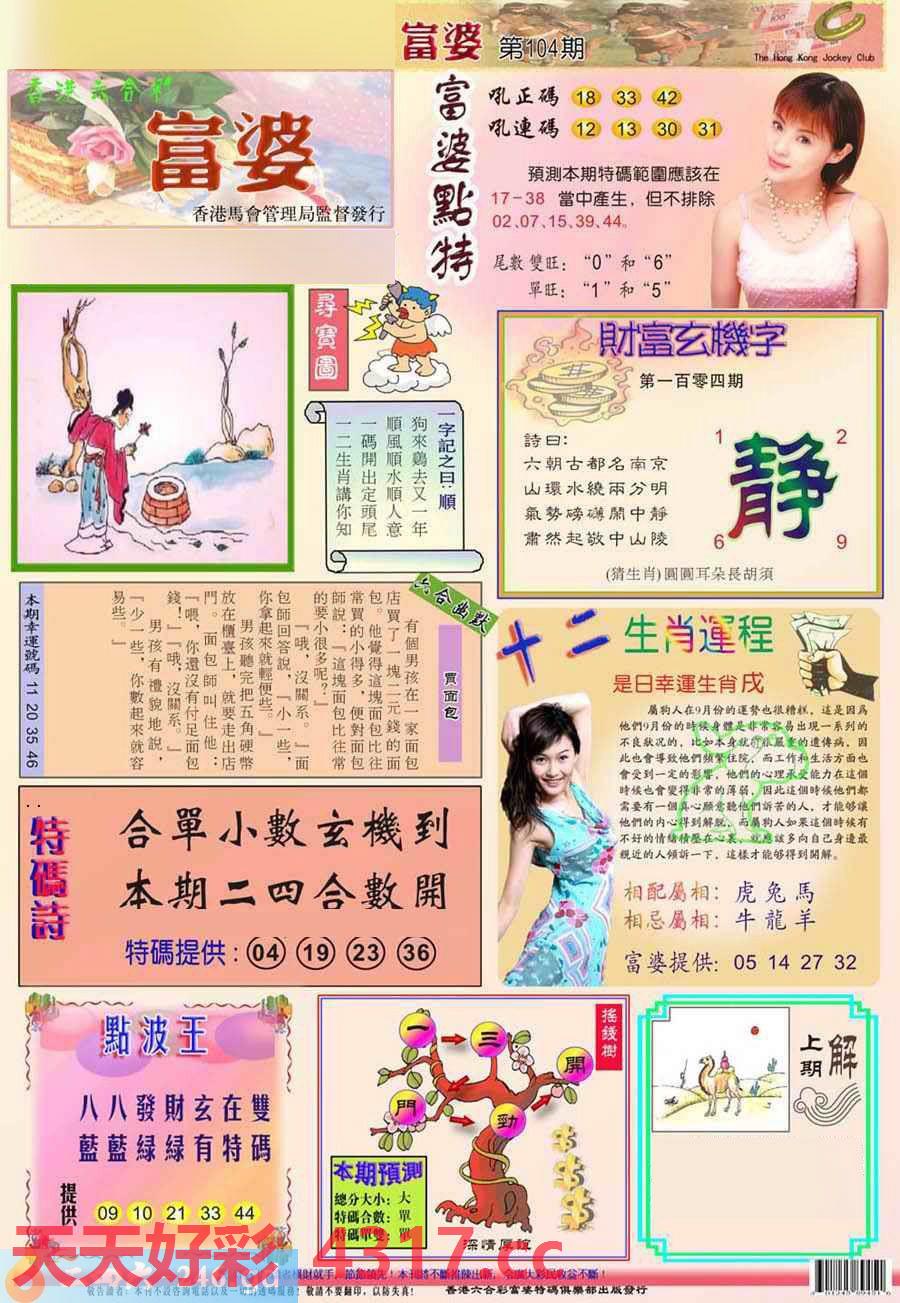 富婆 第104期
The Hong Kong Jockey Club
香港六合彩
富婆
香港馬會管理局監督發行
富婆點特
吼正碼 18 33 42
吼連碼 12 13 30 31
預測本期特碼範圍應該在
17-38 當中產生，但不排除
02、07、15、39、44。
尾數雙旺：“0”和“6”
單旺：“1”和“5”
尋寶圖
一字記之曰：順
狗來鷄去又一年
順風順水順人意
一碼開出定頭尾
一二生肖講你知
財富玄機字
第一百零四期
詩曰：
六朝古都名南京
山環水繞兩分明
氣勢磅礴鬧中靜
肅然起敬中山陵
1 2
靜
6 9
(猜生肖)圓圓耳朵長胡須
六合幽默
買面包
有個男孩在一家面包
店買了一塊二元錢的面
包。他覺得這塊面包比往
常買的小得多，便對面包
師說：『這塊面包比往常
的要小很多呢？』
『哦，沒關系。』面
包師回答說，『小一些，
你拿起來就輕便些。』
男孩聽完把五角硬幣
放在櫃臺上，就要走出店
門。面包師叫住他：
『喂，你還沒有付足面包
錢！』『哦，沒關系。』
男孩有禮貌地說，
『少一些，你數起來就容
易些。』
本期幸運號碼 11 20 35 46
十二生肖運程
是日幸運生肖戌
屬狗人在9月份的運勢也很糟糕，這是因為
他們9月份的時候身體是非常容易出現一系列的
不良狀況的，比如本身就有很嚴重的遺傳病，因
此也會導致他們頻繁住院，而工作和生活方面也
會受到一定的影響，他們的心理承受能力在這個
時候也會變得非常的薄弱，因此這個時候他們都
需要有一個真心願意聽他們訴苦的人，才能够讓
他們的內心得到解脫，而屬狗人如果這個時候有
不好的情緒積壓在心裏，就應該多向自己身邊最
親近的人傾訴一下，這樣才能够得到開解。
相配屬相：虎兔馬
相忌屬相：牛龍羊
富婆提供：05 14 27 32
特碼詩
合單小數玄機到
本期二四合數開
特碼提供：04 19 23 36
點波王
八八發財玄在雙
藍藍緑緑有特碼
提供 09 10 21 33 44
搖錢樹
一 三 開
門 勁
本期預測
總分大小：大
特碼合數：單
特碼單雙：單
深情厚誼
上期解
天天好彩 4317.cc
香港六合彩富婆特碼俱樂部出版發行
敬請不要翻印，以防失真！